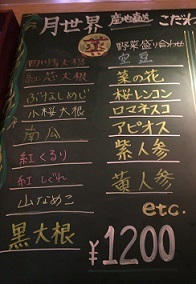 月世界 産地直送 こだわ
菜 野菜盛り合わせ
空豆
紅芯大根
ぶなしめじ
小桜大根
南瓜
紅くるり
紅しぐれ
山なめこ
黒大根
菜の花
桜レンコン
ロマネスコ
アピオス
紫人参
黄人参
etc.
¥1200